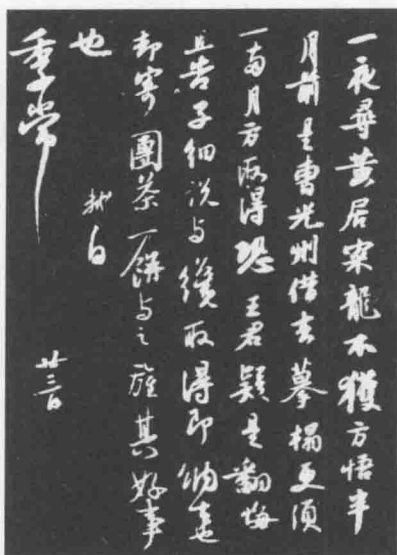 一夜尋黃居寀龍不獲方悟半
月前是曹光州借去摹榻更須
一兩月方取得恐王君疑是翻悔
且告子細說与纔取得即納去也
却寄團茶一餅与之旌其好事
也
軾白 廿三日
季常